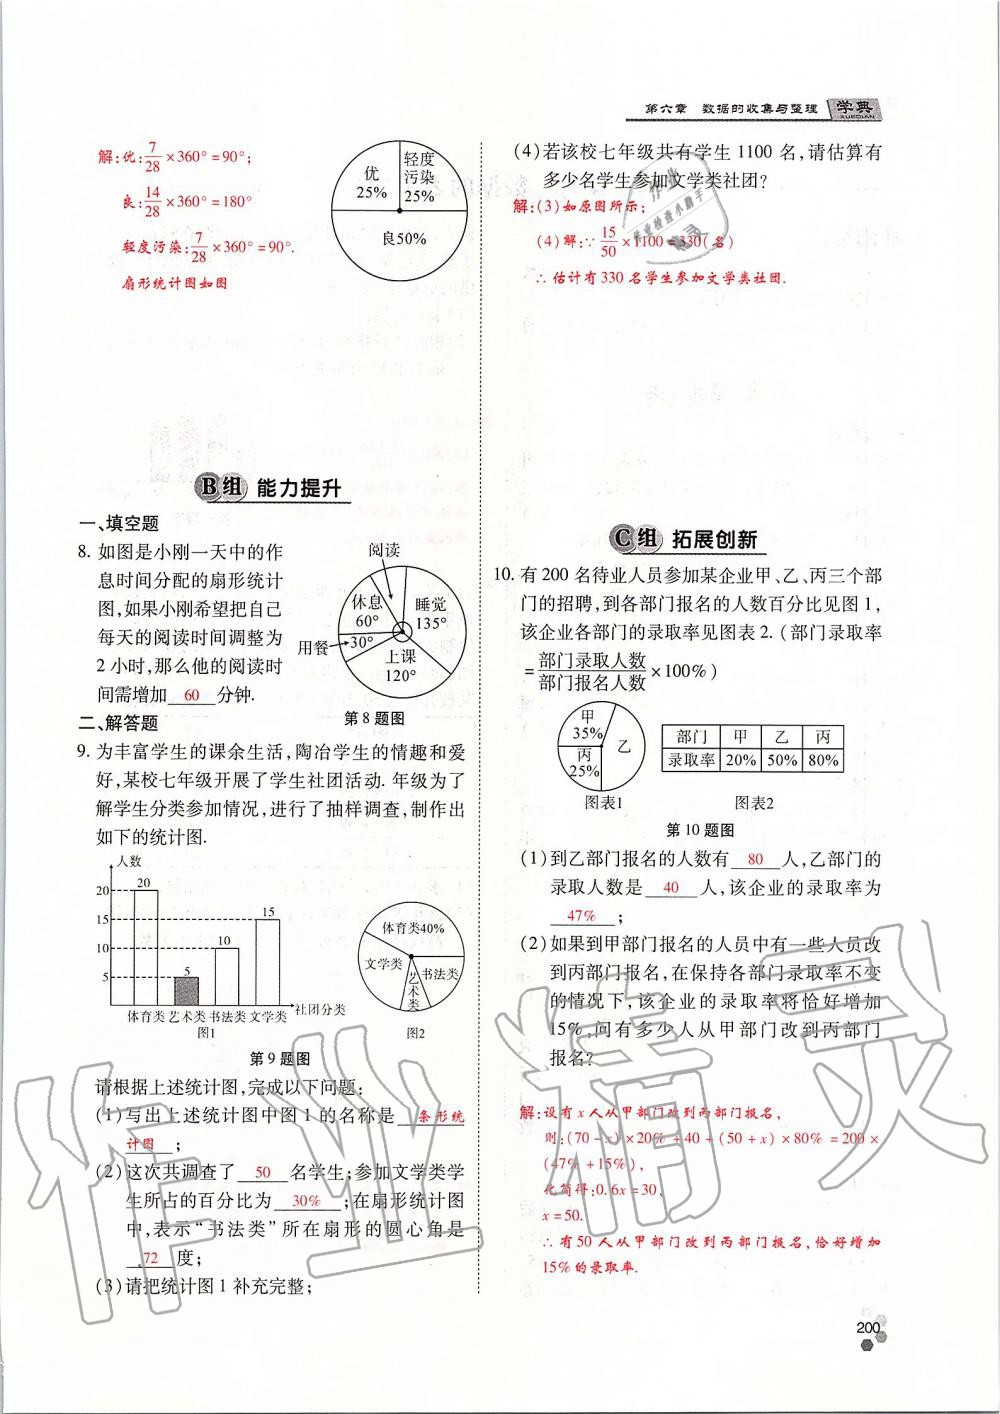 第六章 数据的收集与整理 学典
XUEDIAN
解:优:7/28×360°=90°;
良:14/28×360°=180°
轻度污染:7/28×360°=90°.
扇形统计图如图
优
25%
轻度
污染
25%
良50%
B组 能力提升
一、填空题
8. 如图是小刚一天中的作
息时间分配的扇形统计
图,如果小刚希望把自己
每天的阅读时间调整为
2小时,那么他的阅读时
间需增加 60 分钟.
阅读
休息
60°
睡觉
135°
用餐
30°
上课
120°
第8题图
二、解答题
9. 为丰富学生的课余生活,陶冶学生的情趣和爱
好,某校七年级开展了学生社团活动. 年级为了
解学生分类参加情况,进行了抽样调查,制作出
如下的统计图.
人数
20
15
10
5
20
5
10
15
体育类 艺术类 书法类 文学类
社团分类
图1
体育类40%
文学类
书法类
艺术类
图2
第9题图
请根据上述统计图,完成以下问题:
(1)写出上述统计图中图1的名称是 条形统
计图 ;
(2)这次共调查了 50 名学生;参加文学类学
生所占的百分比为 30% ;在扇形统计图
中,表示“书法类”所在扇形的圆心角是
72 度;
(3)请把统计图1补充完整;
(4)若该校七年级共有学生1100名,请估算有
多少名学生参加文学类社团?
解:(3)如原图所示;
(4)解:∵15/50×1100=330(名)
∴估计有330名学生参加文学类社团.
C组 拓展创新
10. 有200名待业人员参加某企业甲、乙、丙三个部
门的招聘,到各部门报名的人数百分比见图1,
该企业各部门的录取率见图表2.(部门录取率
=部门录取人数/部门报名人数×100%)
甲
35%
乙
丙
25%
图表1
部门 甲 乙 丙
录取率 20% 50% 80%
图表2
第10题图
(1)到乙部门报名的人数有 80 人,乙部门的
录取人数是 40 人,该企业的录取率为
47% ;
(2)如果到甲部门报名的人员中有一些人员改
到丙部门报名,在保持各部门录取率不变
的情况下,该企业的录取率将恰好增加
15%,问有多少人从甲部门改到丙部门
报名?
解:设有x人从甲部门改到丙部门报名,
则:(70-x)×20%+40+(50+x)×80%=200×
(47%+15%),
化简得:0.6x=30,
x=50.
∴有50人从甲部门改到丙部门报名,恰好增加
15%的录取率.
200
作业精灵